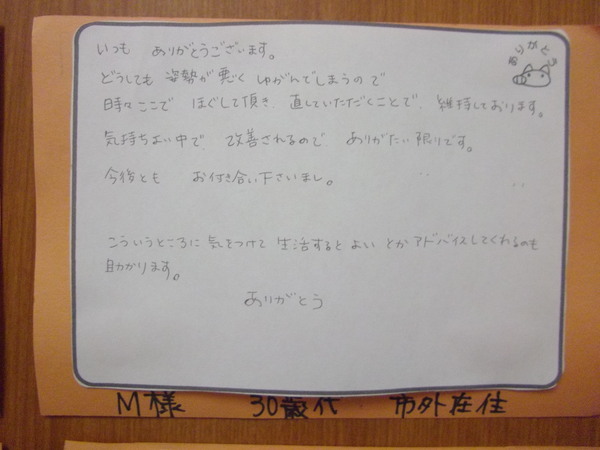 いつも ありがとうございます。
ありがとう
どうしても 姿勢が悪く ゆがんでしまうので
時々ここで ほぐして頂き、直していただくことで、維持しております。
気持ちよい中で、改善されるので ありがたい限りです。
今後とも お付き合い下さいまし。
こういうところに気をつけて 生活するとよい とかアドバイスしてくれるのも
助かります。
ありがとう
M様 30歳代 市外在住